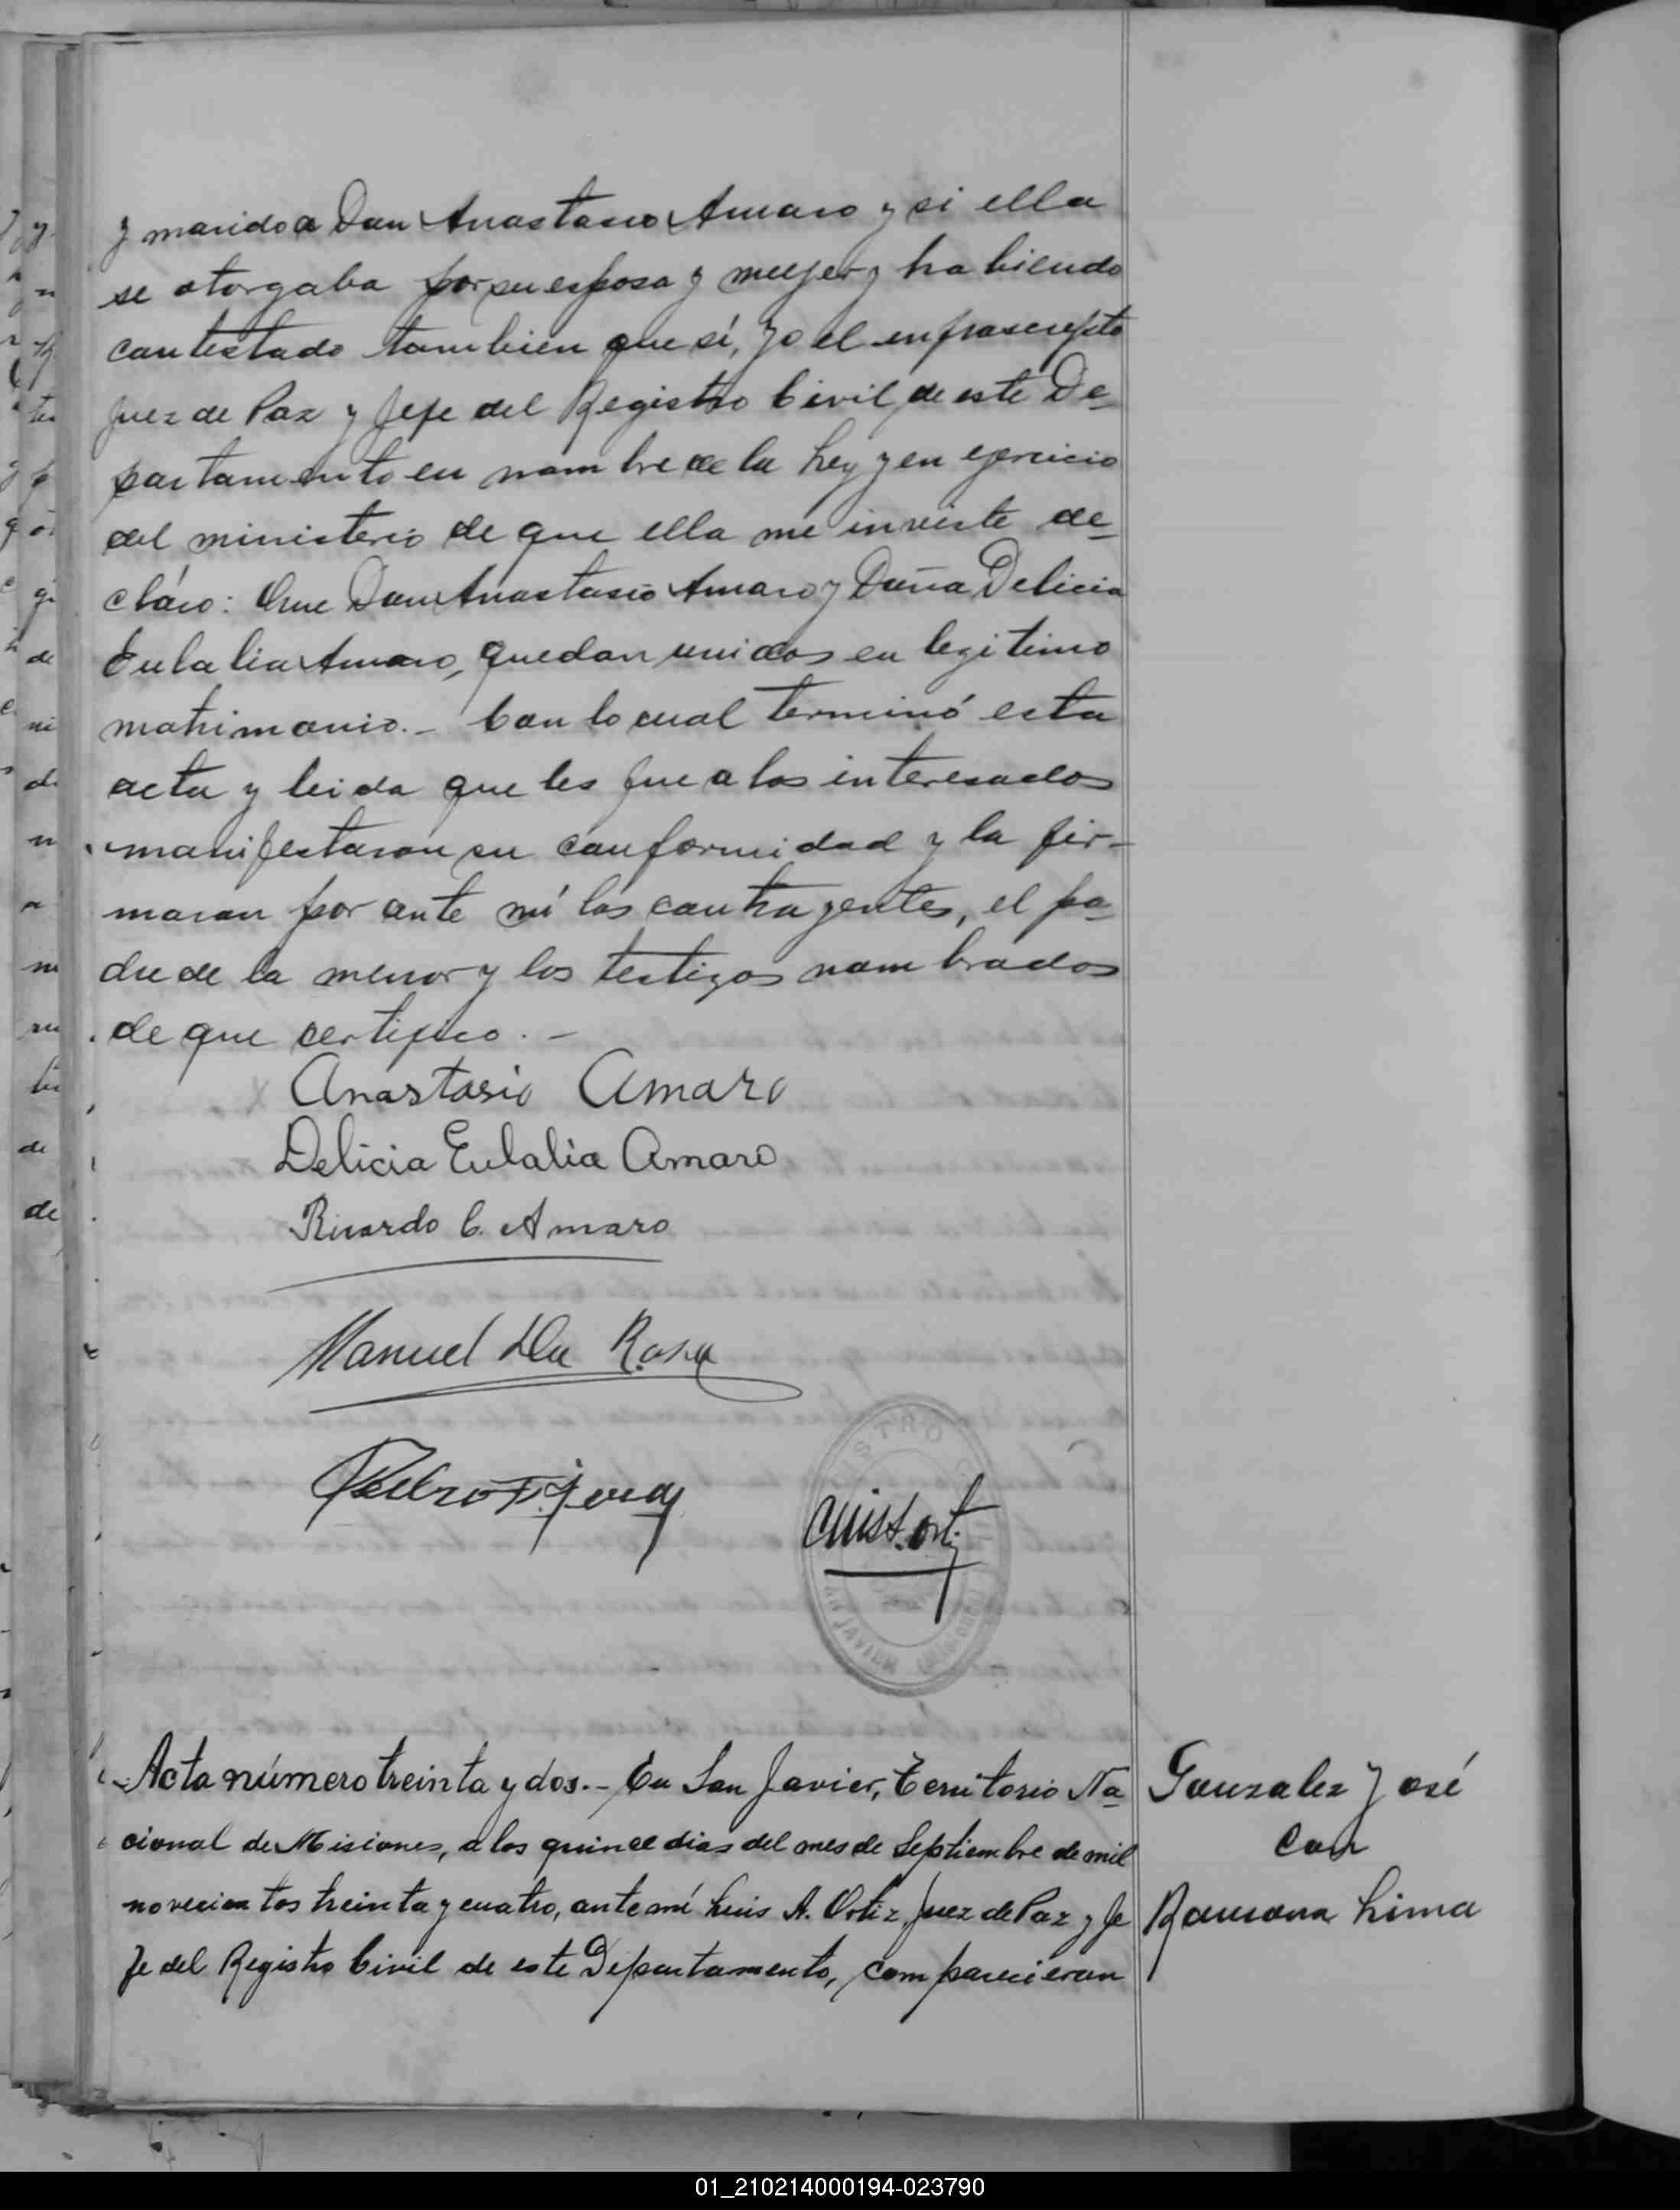 y marido a Don Anastasio Amaro y si ella
se otorgaba por su esposa y mujer y habiendo
contestado tambien que sí, yo el enfrascripto
Juez de Paz y Jefe del Registro Civil de este De-
partamento en nombre de la Ley y en ejercicio
del ministerio de que ella me inviste de-
cláro: Que Don Anastasio Amaro y Doña Delicia
Eulalia Amaro, quedan unidos en legitimo
matrimonio.- Con lo cual terminó esta
acta y leida que les fue a los interesados
manifestaron su conformidad y la fir-
maron por ante mí los contrayentes, el pa-
dre de la menor y los testigos nombrados
de que certifico.-
Anastasio Amaro
Delicia Eulalia Amaro
Ricardo C. Amaro
Manuel Da Rosa
Pedro F.
Luis A. Ortiz
Acta número treinta y dos.- En San Javier, Territorio Na-
cional de Misiones, a los quince dias del mes de Septiembre de mil
novecientos treinta y cuatro, ante mí Luis A. Ortiz, Juez de Paz y Je
fe del Registro Civil de este Departamento, comparecieron
Gonzalez José
con
Ramona Lima
01_210214000194-023790